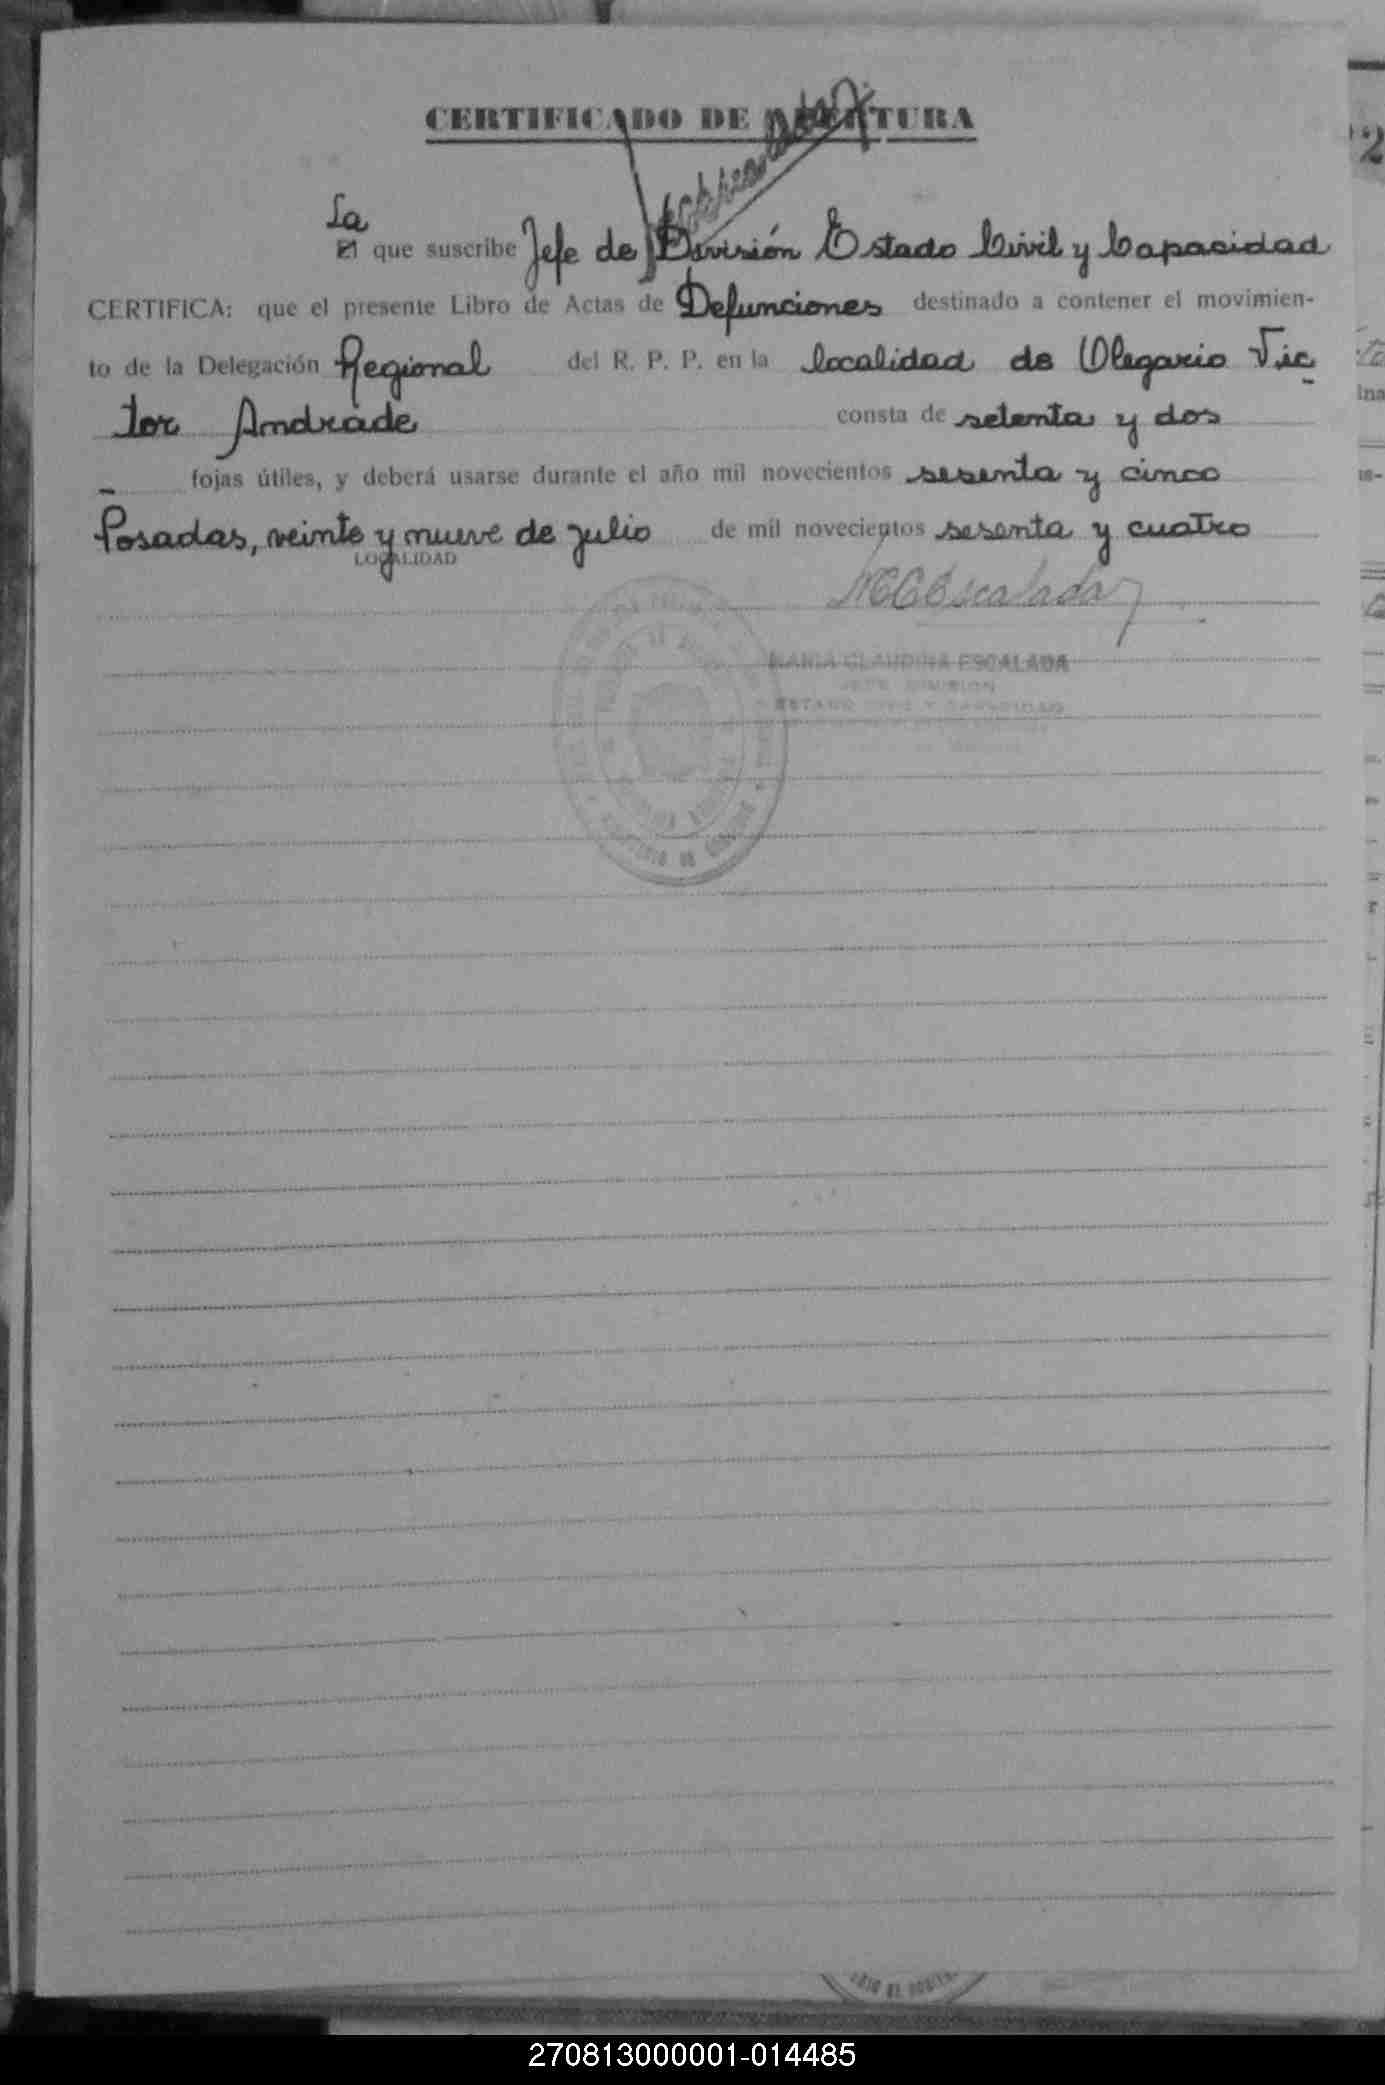 CERTIFICADO DE APERTURA
La
El que suscribe Jefe de División Estado Civil y Capacidad
CERTIFICA: que el presente Libro de Actas de Defunciones destinado a contener el movimien-
to de la Delegación Regional del R. P. P. en la localidad de Olegario Vic
tor Andrade consta de setenta y dos
fojas útiles, y deberá usarse durante el año mil novecientos sesenta y cinco
Posadas, veinte y nueve de julio de mil novecientos sesenta y cuatro
LOCALIDAD
MCEscalada
MARIA CLAUDINA ESCALADA
JEFE DIVISION
ESTADO CIVIL Y CAPACIDAD
270813000001-014485